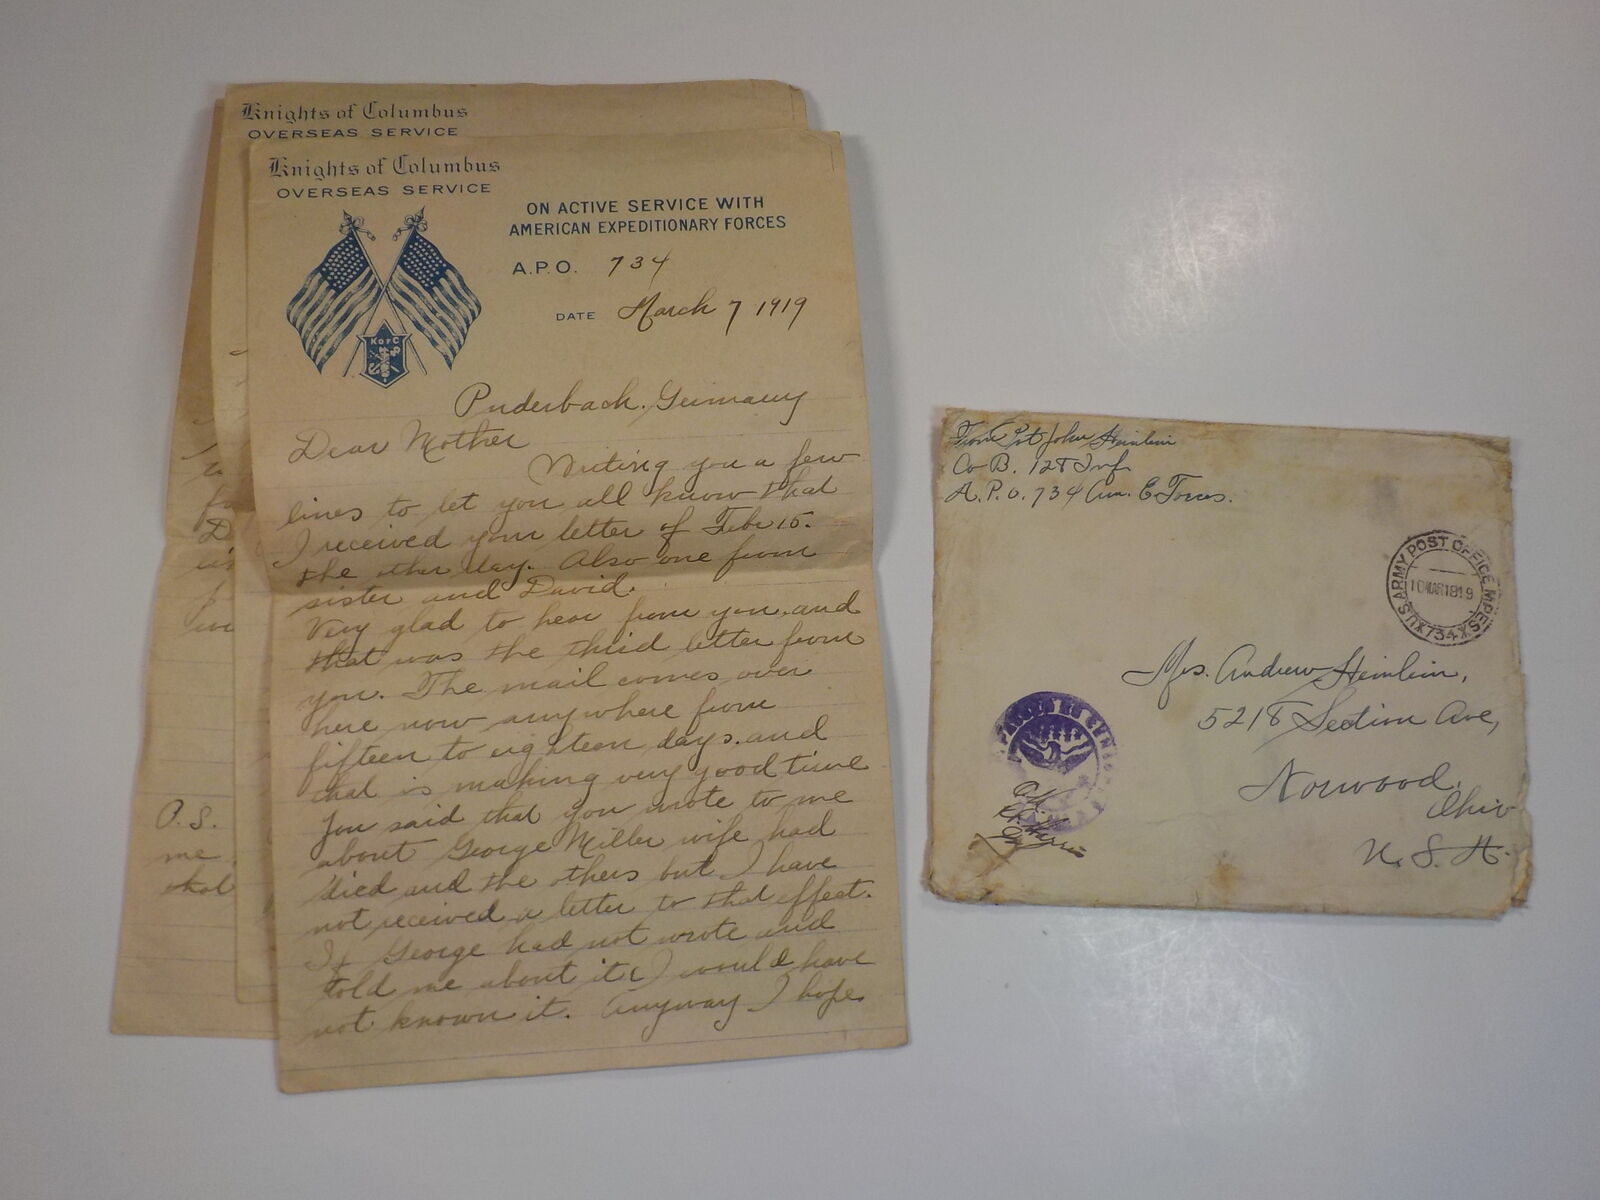 Knights of Columbus
OVERSEAS SERVICE
Knights of Columbus
OVERSEAS SERVICE
ON ACTIVE SERVICE WITH
AMERICAN EXPEDITIONARY FORCES
A.P.O. 734
DATE March 7 1919
K of C
Puderbach, Germany
Dear Mother
Writing you a few
lines to let you all know that
I received your letter of Feb 15.
the other day. Also one from
sister and David.
Very glad to hear from you, and
that was the third letter from
you. The mail comes over
here now anywhere from
fifteen to eighteen days. and
that is making very good time
You said that you wrote to me
about George Miller wife had
died and the others but I have
not received a letter to that effect.
If George had not wrote and
told me about it I would have
not known it. Anyway I hope
P.S.
me
that
From Pvt John Heinlein
Co B. 128 Inf.
A.P.O. 734 Am. E Forces.
U.S. ARMY POST OFFICE M.P.E.S.
10 MAR 1919
734
Mrs. Andrew Heinlein,
5218 Section Ave,
Norwood,
Ohio
U.S.A.
O.K.